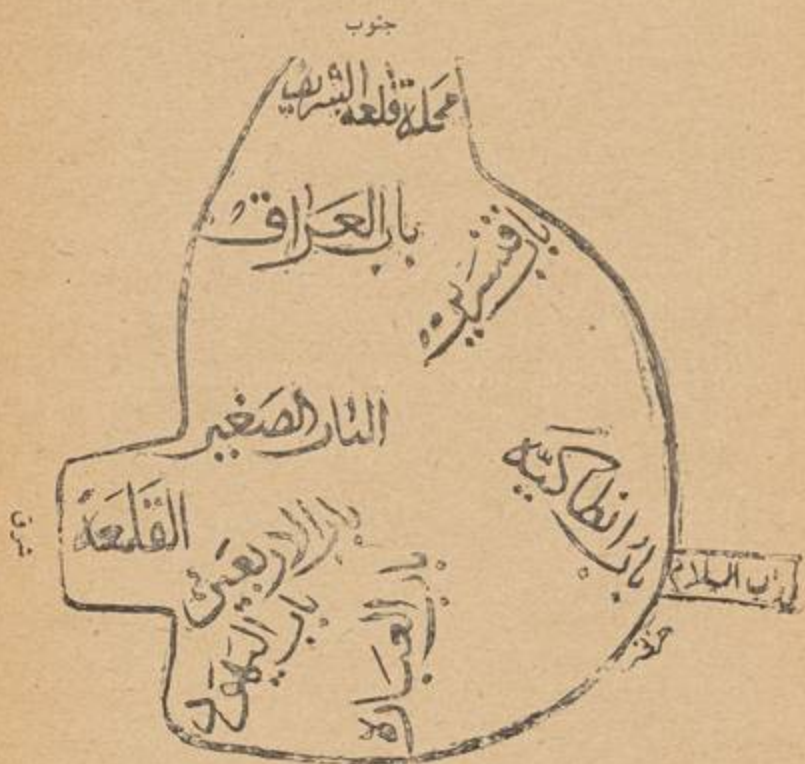 جنوب
محلة قلعه الشريف
باب العراق
باب قنسرين
الباب الصغير
باب انطاكية
القلعة
شرق
باب الاربعين
باب اليهود
باب العبارة
باب السلام